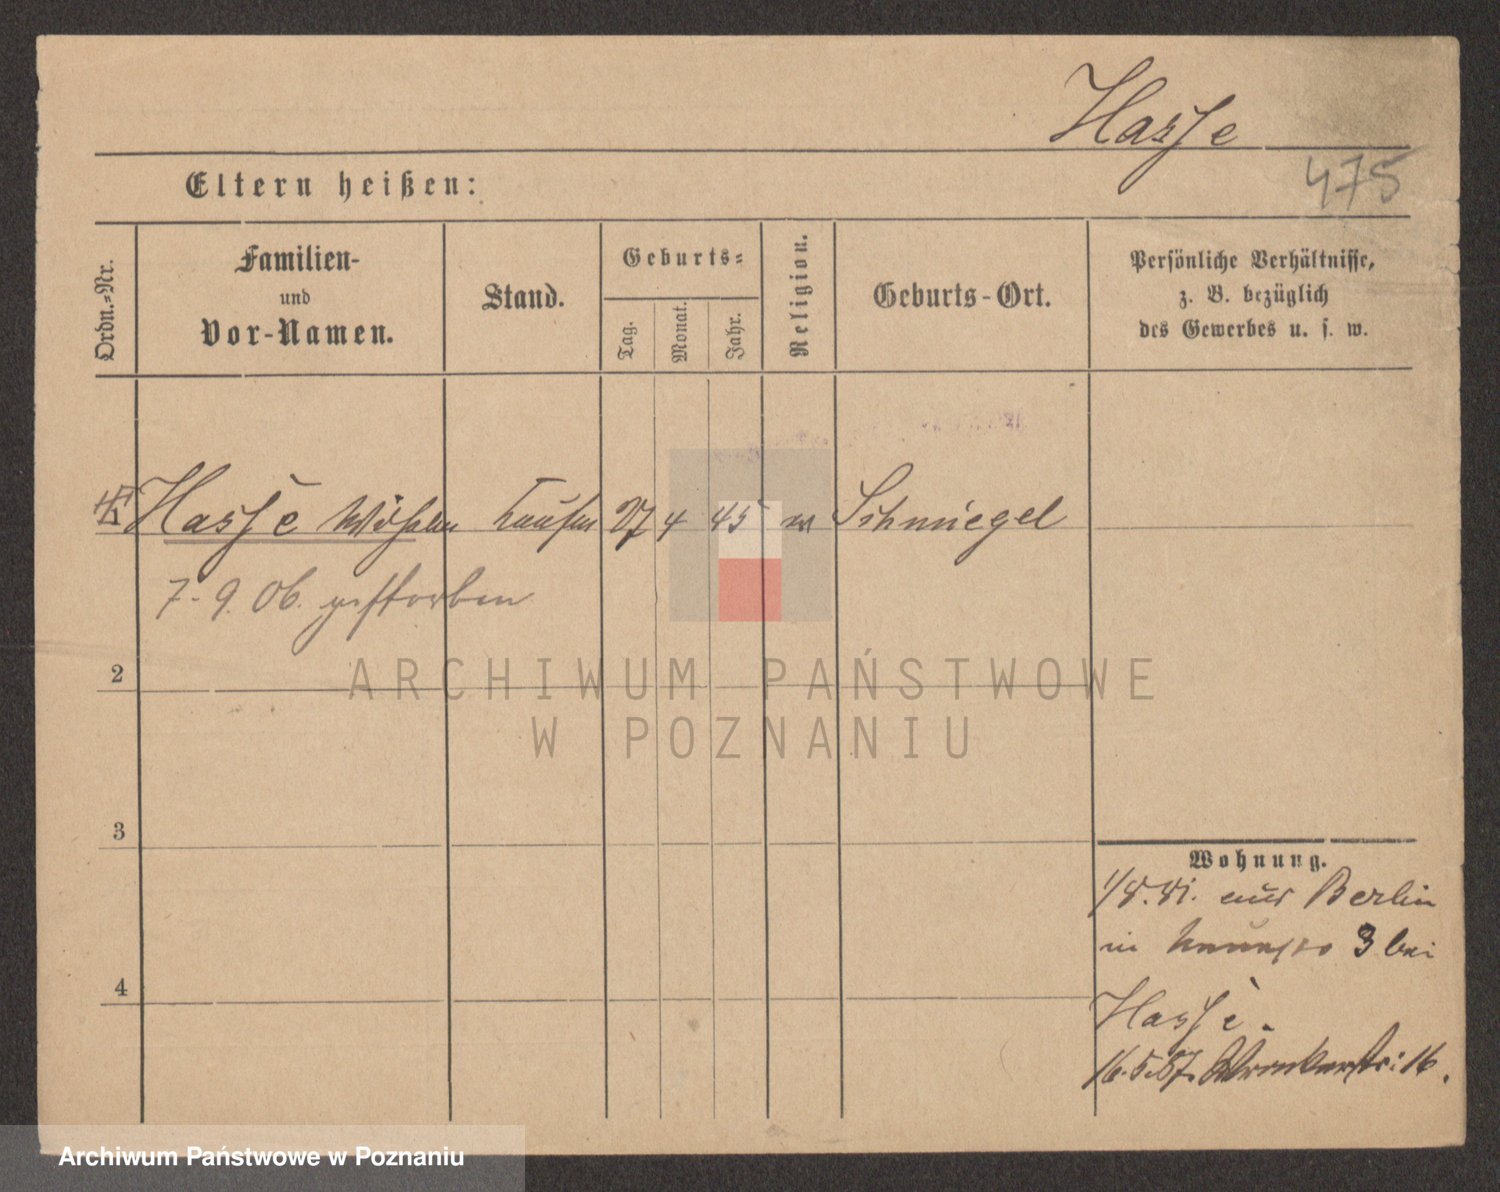 Hasse
475
Eltern heißen:
Ordn.=Nr.
Familien-
und
Vor-Namen.
Stand.
Geburts=
Tag.
Monat.
Jahr.
Religion.
Geburts-Ort.
Persönliche Verhältnisse,
z. B. bezüglich
des Gewerbes u. s. w.
Hasse Wilhelm Kaufm 27 4 45 Schmiegel
7.9.06. gestorben
2
3
4
Wohnung.
1/8.81. aus Berlin
in 3 bei
Hasse.
16.5.87. Wronkerstr: 16.
ARCHIWUM PAŃSTWOWE
W POZNANIU
Archiwum Państwowe w Poznaniu